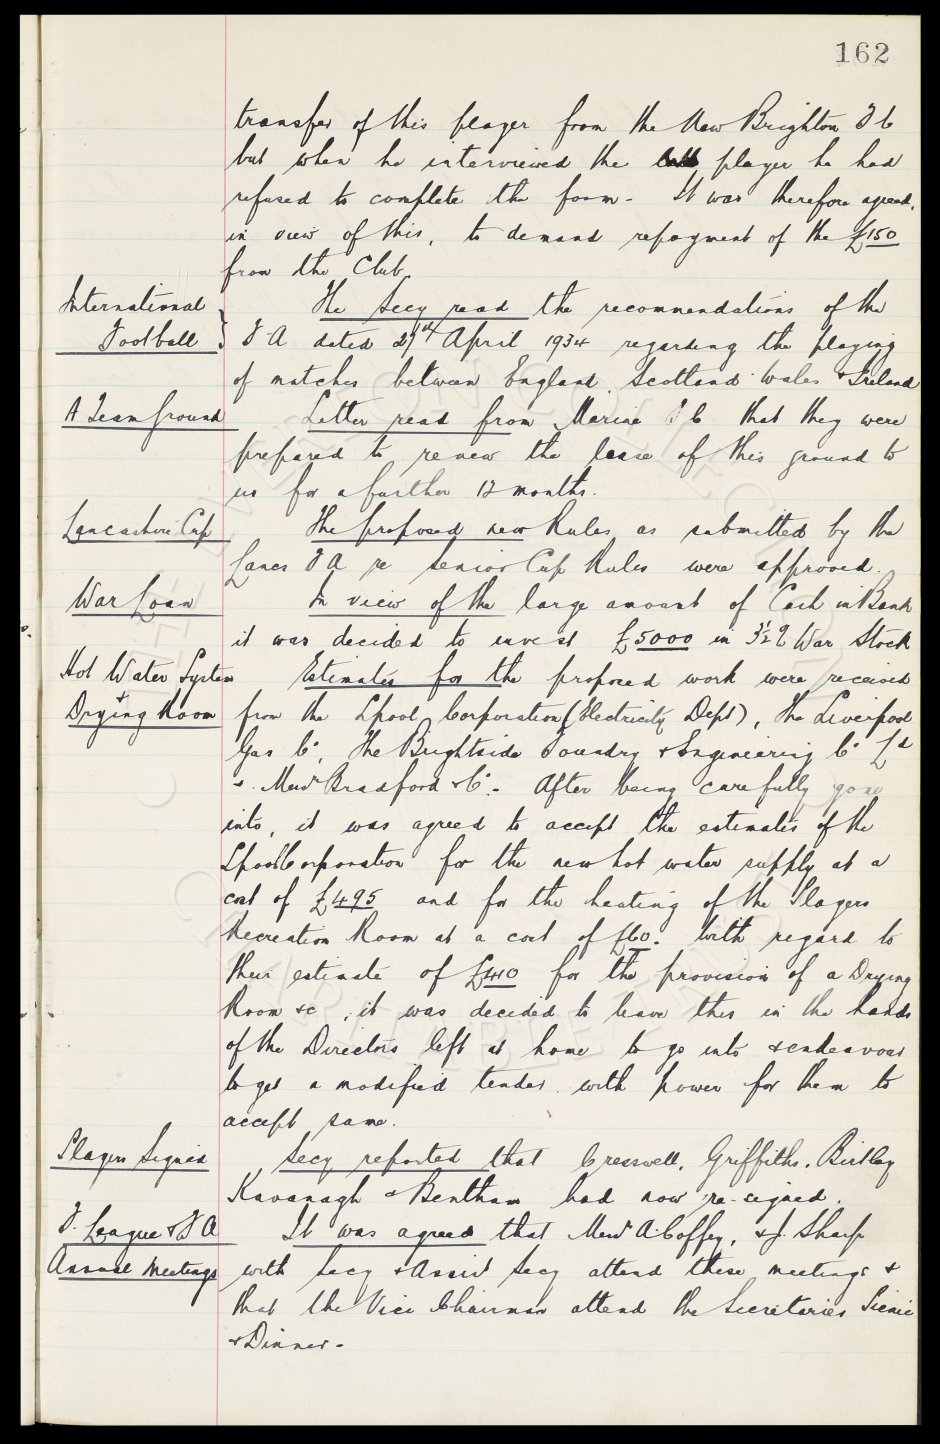 162
transfer of this player from the New Brighton F C
but when he interviewed the player he had
refused to complete the form - It was therefore agreed,
in view of this, to demand repayment of the £150
from the Club.
International The Secy read the recommendations of the
Football } F.A dated 27th April 1934 regarding the playing
of matches between England Scotland Wales & Ireland
A Team Ground Letter read from Marine F C that they were
prepared to renew the lease of this ground to
us for a further 12 months.
Lancashire Cup The proposed new Rules as submitted by the
Lancs F A re Senior Cup Rules were approved.
War Loan In view of the large amount of Cash in Bank
it was decided to invest £5000 in 3½% War Stock
Hot Water System Estimates for the proposed work were received
&
Drying Room from the Lpool Corporation (Electricity Dept), The Liverpool
Gas Co, The Brightside Foundry & Engineering Co Ld
& Messrs Bradford & Co. - After being carefully gone
into, it was agreed to accept the estimates of the
Lpool Corporation for the new hot water supply at a
cost of £495 and for the heating of the Players
Recreation Room at a cost of £60. With regard to
their estimate of £410 for the provision of a Drying
Room &c, it was decided to leave this in the hands
of the Directors left at home to go into & endeavour
to get a modified tender with power for them to
accept same.
Players Signed Secy reported that Cresswell, Griffiths, Birtley
Kavanagh & Bentham had now re-signed.
F. League & F A It was agreed that Messrs A Coffey, & J. Sharp
Annual Meetings with Secy & Assist Secy attend these meetings &
that the Vice Chairman attend the Secretaries Picnic
& Dinner -